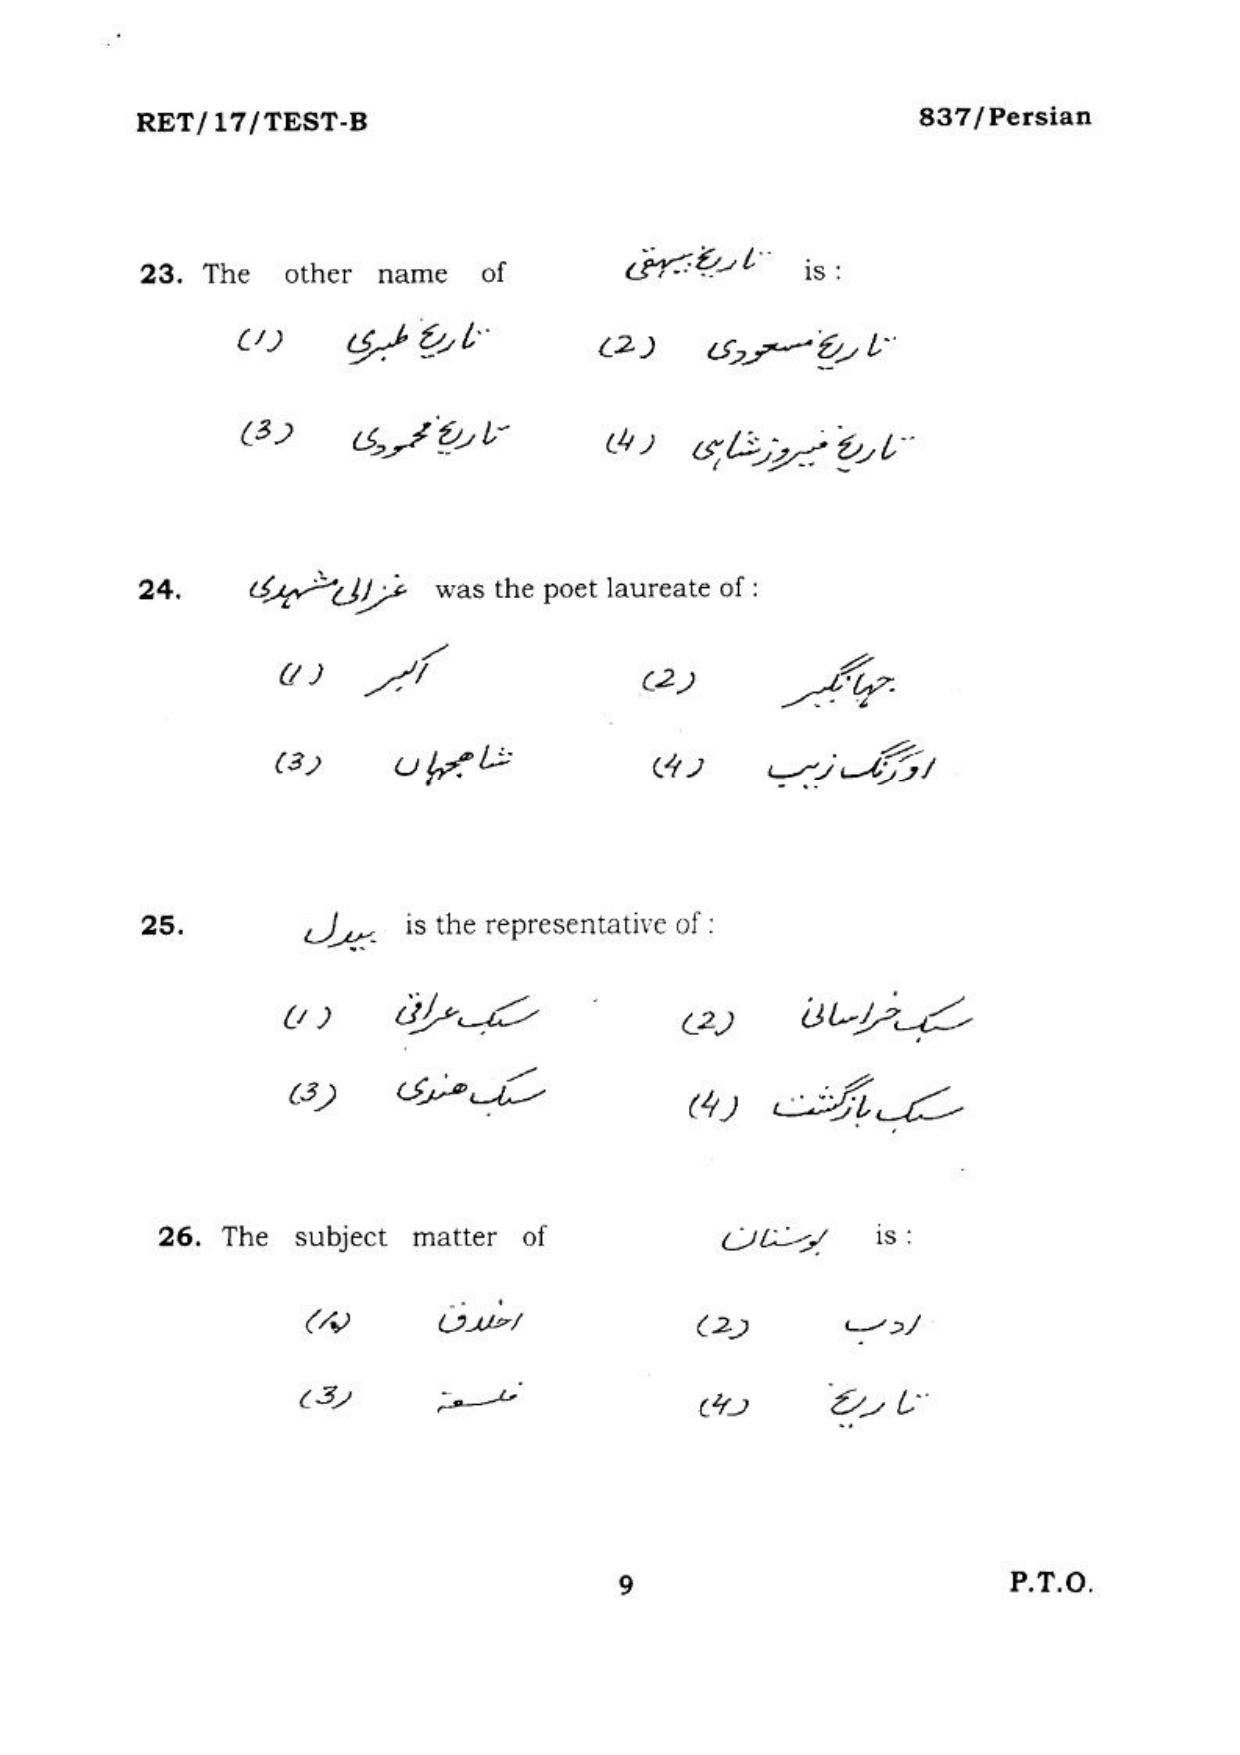 RET/17/TEST-B 837/Persian
23. The other name of تاریخ بیہقی is :
(1) تاریخ طبری (2) تاریخ مسعودی
(3) تاریخ محمودی (4) تاریخ فیروز شاہی
24. غزالی مشہدی was the poet laureate of :
(1) اکبر (2) جہانگیر
(3) شاہجہاں (4) اورنگ زیب
25. بیدل is the representative of :
(1) سبک عراقی (2) سبک خراسانی
(3) سبک هندی (4) سبک بازگشت
26. The subject matter of بوستان is :
(1) اخلاق (2) ادب
(3) فلسفہ (4) تاریخ
9 P.T.O.